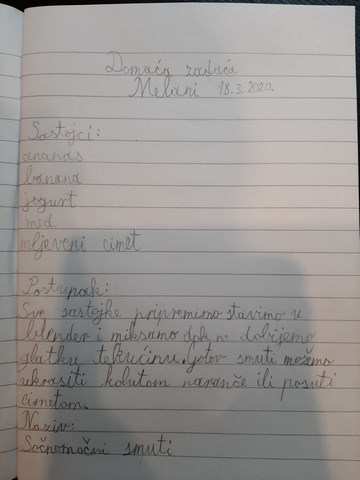 Domaća zadaća
Melani 18.3.2020.
Sastojci:
ananas
banana
jogurt
med
mljeveni cimet
Postupak:
Sve sastojke pripremimo stavimo u
blender i miksamo dok ne dobijemo
glatku tekućinu. Gotov smuti možemo
ukrasiti kolutom naranče ili posuti
cimetom.
Naziv:
Sočnomoćni smuti